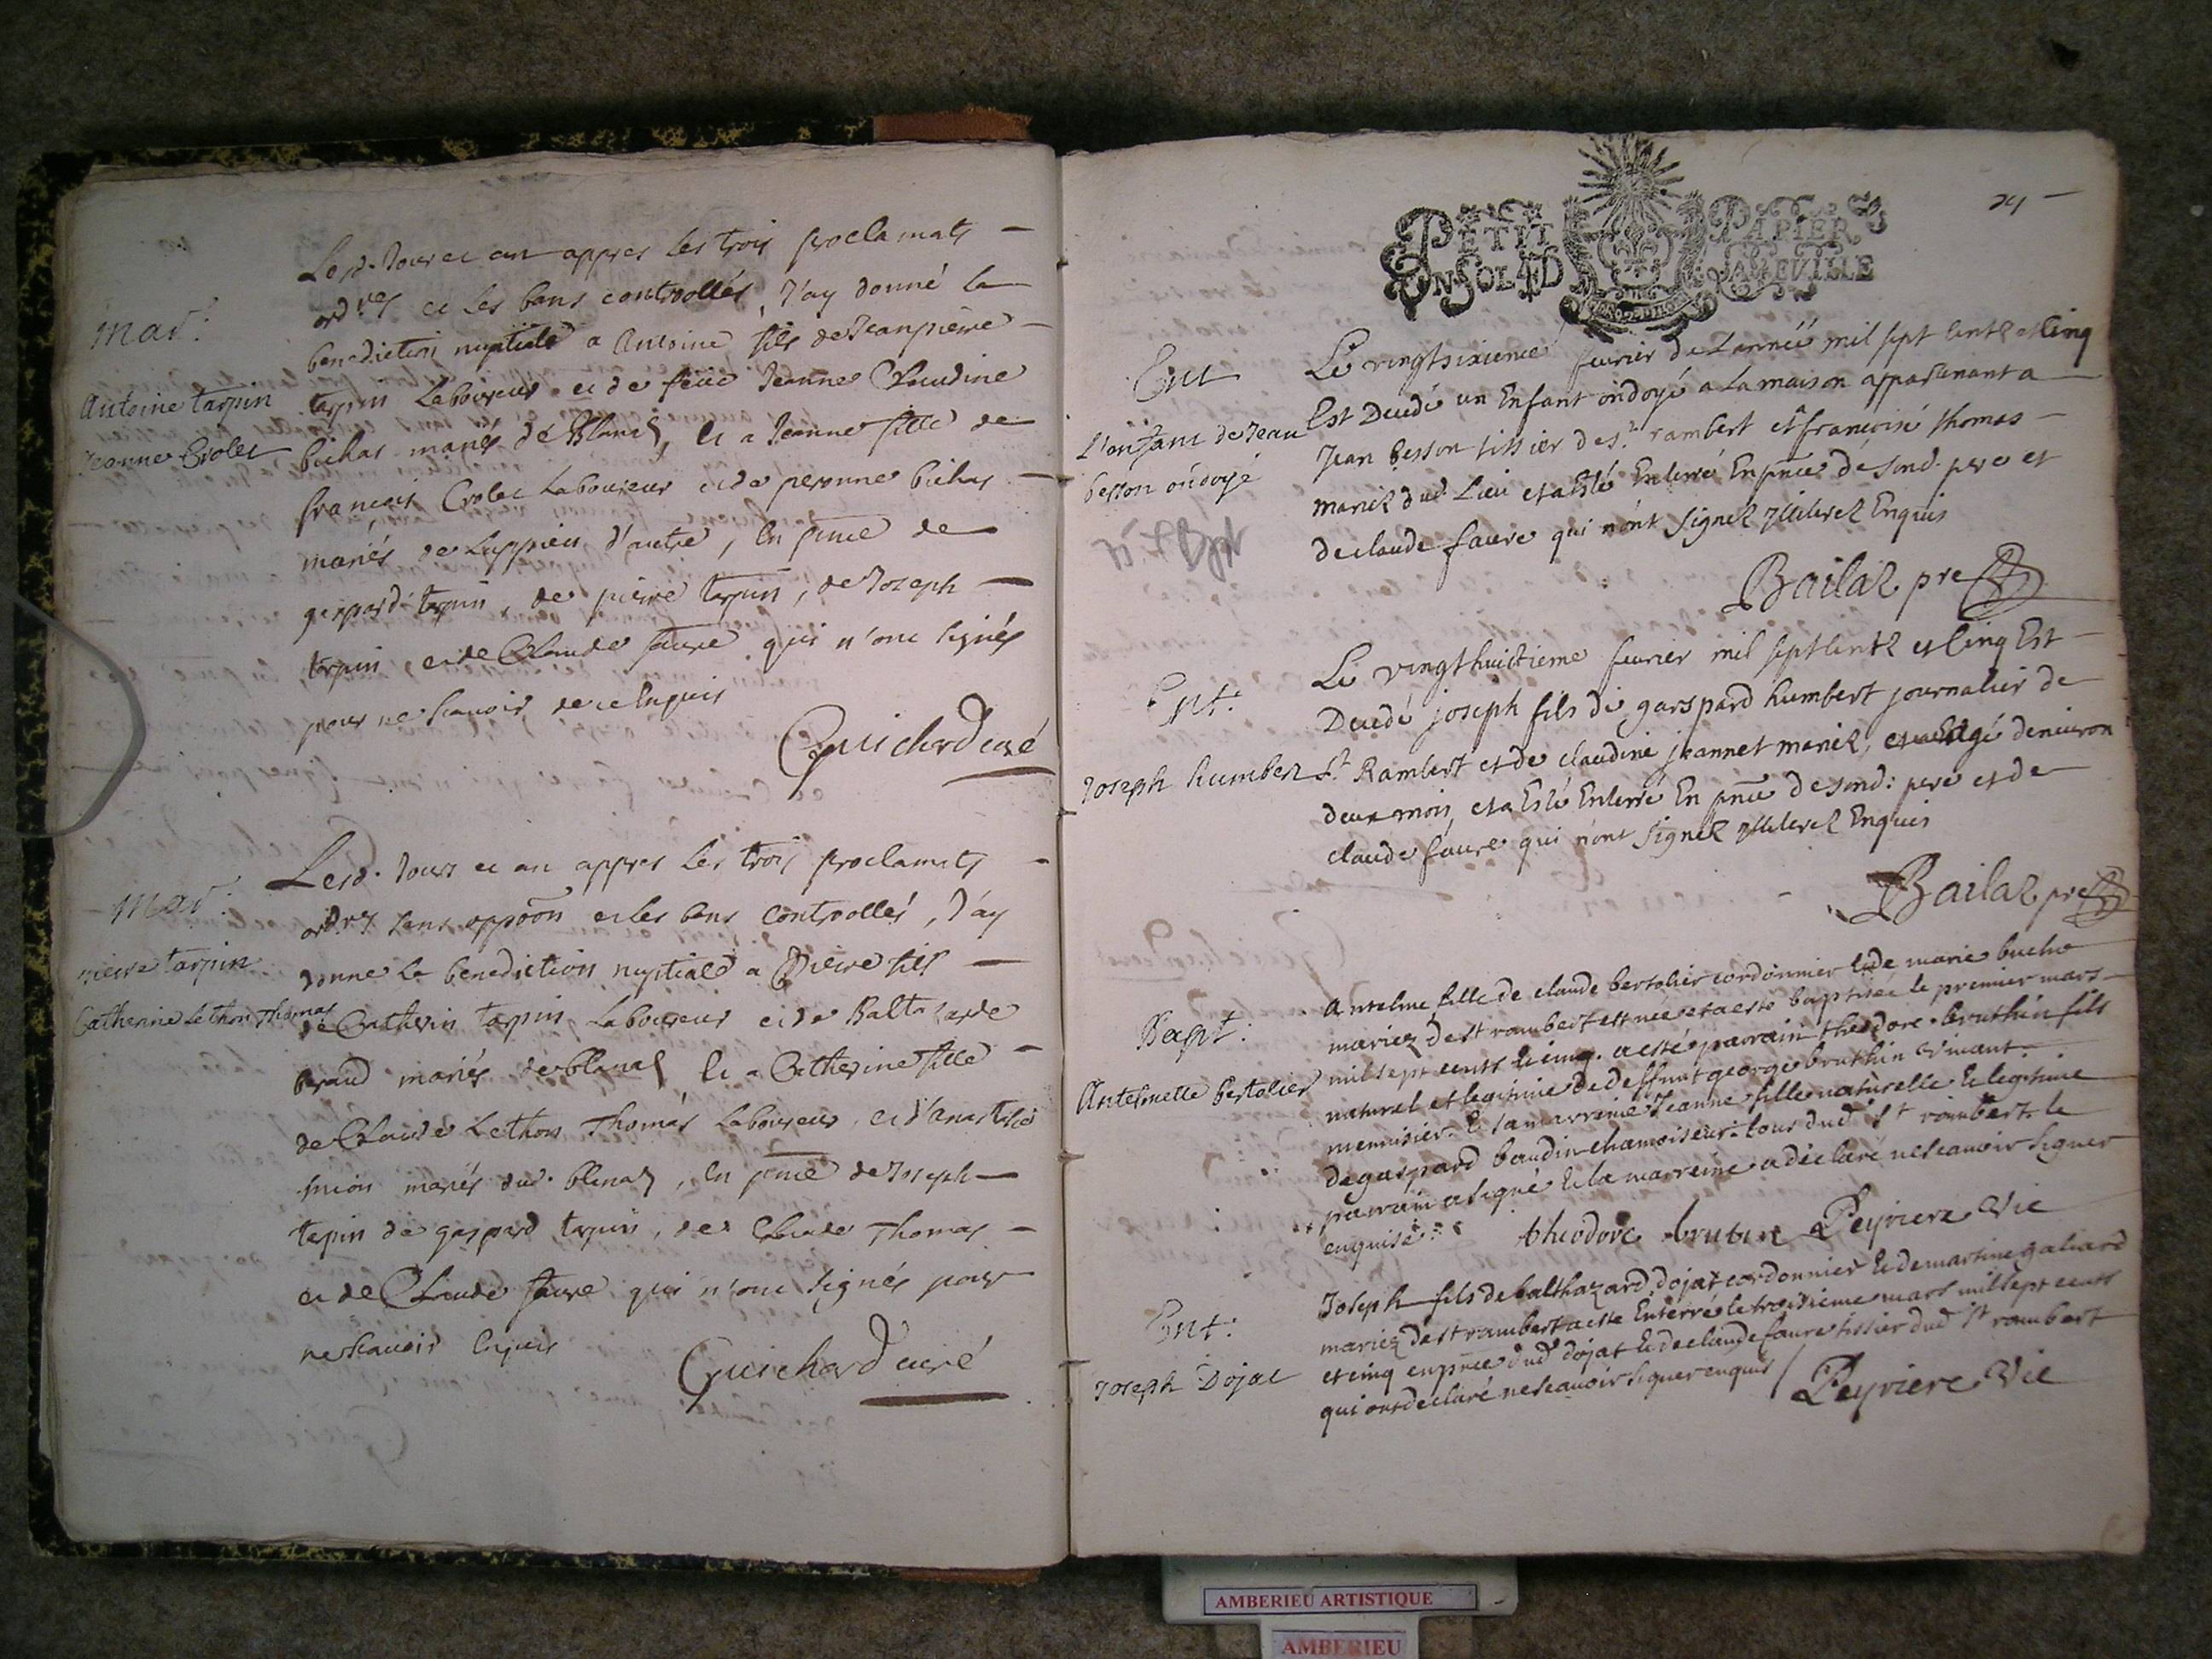 Lesd. Jour et an appres les trois proclamats
ord.res et les bans controllés, J'ay donné la
benediction nuptiale a Antoine fils de Jeanpierre
Mar:
tarpin Laboureur et de feue Jeanne Claudine
Antoine tarpin
bichat mariés de Blanas, et a Jeanne fille de
Jeanne Crolet
francois Crolet Laboureur et de peronne bichat
mariés de Luppieu d'autre, En pnce de
gaspard tarpin, de pierre tarpin, de Joseph
tarpin, et de Claude faure qui n'ont signés
pour ne scavoir de ce Enquis
Guichard curé
Lesd. Jour et an appres les trois proclamats
Mar:
ord.res sans oppoôn et les bans Controllés, J'ay
pierre tarpin
donne la benediction nuptiale a Pierre fils
Catherine Lethon Thomas
de Catherin tarpin Laboureur et de Baltasarde
braud mariés de blanas et a Catherine fille
de Claude Lethon Thomas Laboureur et d'anastasie
mariés dud. blanas, En pnce de Joseph
tapin de gaspard tarpin, de Claude Thomas
et de Claude faure qui n'ont signés pour
ne scavoir Enquis
Guichard curé
PETIT PAPIER
UN SOL 4 D LA FEUILLE
Ent
Le vingtsixieme feurier de L'année mil sept Cents et Cinq
Est Decedé un Enfant ondoyé a La maison appartenant a
L'enfant de Jean
besson ondoyé
Jean besson tissier de St rambert et francoise thomas
mariez dud. Lieu et a Esté Enterré En pnce de sond. pere et
de claude faure qui n'ont signez Illiterez Enquis
Bailaz pre
Ent:
Le vingthuictieme feurier mil sept Centz et Cinq Est
Decedé joseph fils de garspard humbert journalier de
Joseph humbert
St Rambert et de claudine jeannet mariez, Agé denuiron
deux mois, et a Esté Enterré En pnce de sond: pere et de
claude faure qui n'ont signez Illiterez Enquis
Bailaz pre
Bapt:
Antelmette bertolier
Antelme fille de claude bertolier cordonnier et de marie buche
mariez de st rambert est née et a esté baptisée le premier mars
mil sept cents et cinq. a esté parrain theodore bruthin fils
naturel et legitime de deffunt george bruthin vivant
menuisier. Et sa marreine Jeanne fille naturelle et legitime
de gaspard baudin chamoiseur. tous dud. st rambert. le
parrain a signé et la marreine a déclaré ne scavoir signer
enquise
theodore brutin Peyriere Vic
Ent:
Joseph Dojat
Joseph fils de balthazard dojat cordonnier et de martine galiard
mariez de st rambert a este Enterré le troisieme mars mil sept cents
et cinq en pnce dud. dojat et de claude faure tissier dud. st rambert
qui ont declaré ne scavoir signer enquis
Peyriere Vic
AMBERIEU ARTISTIQUE
AMBERIEU